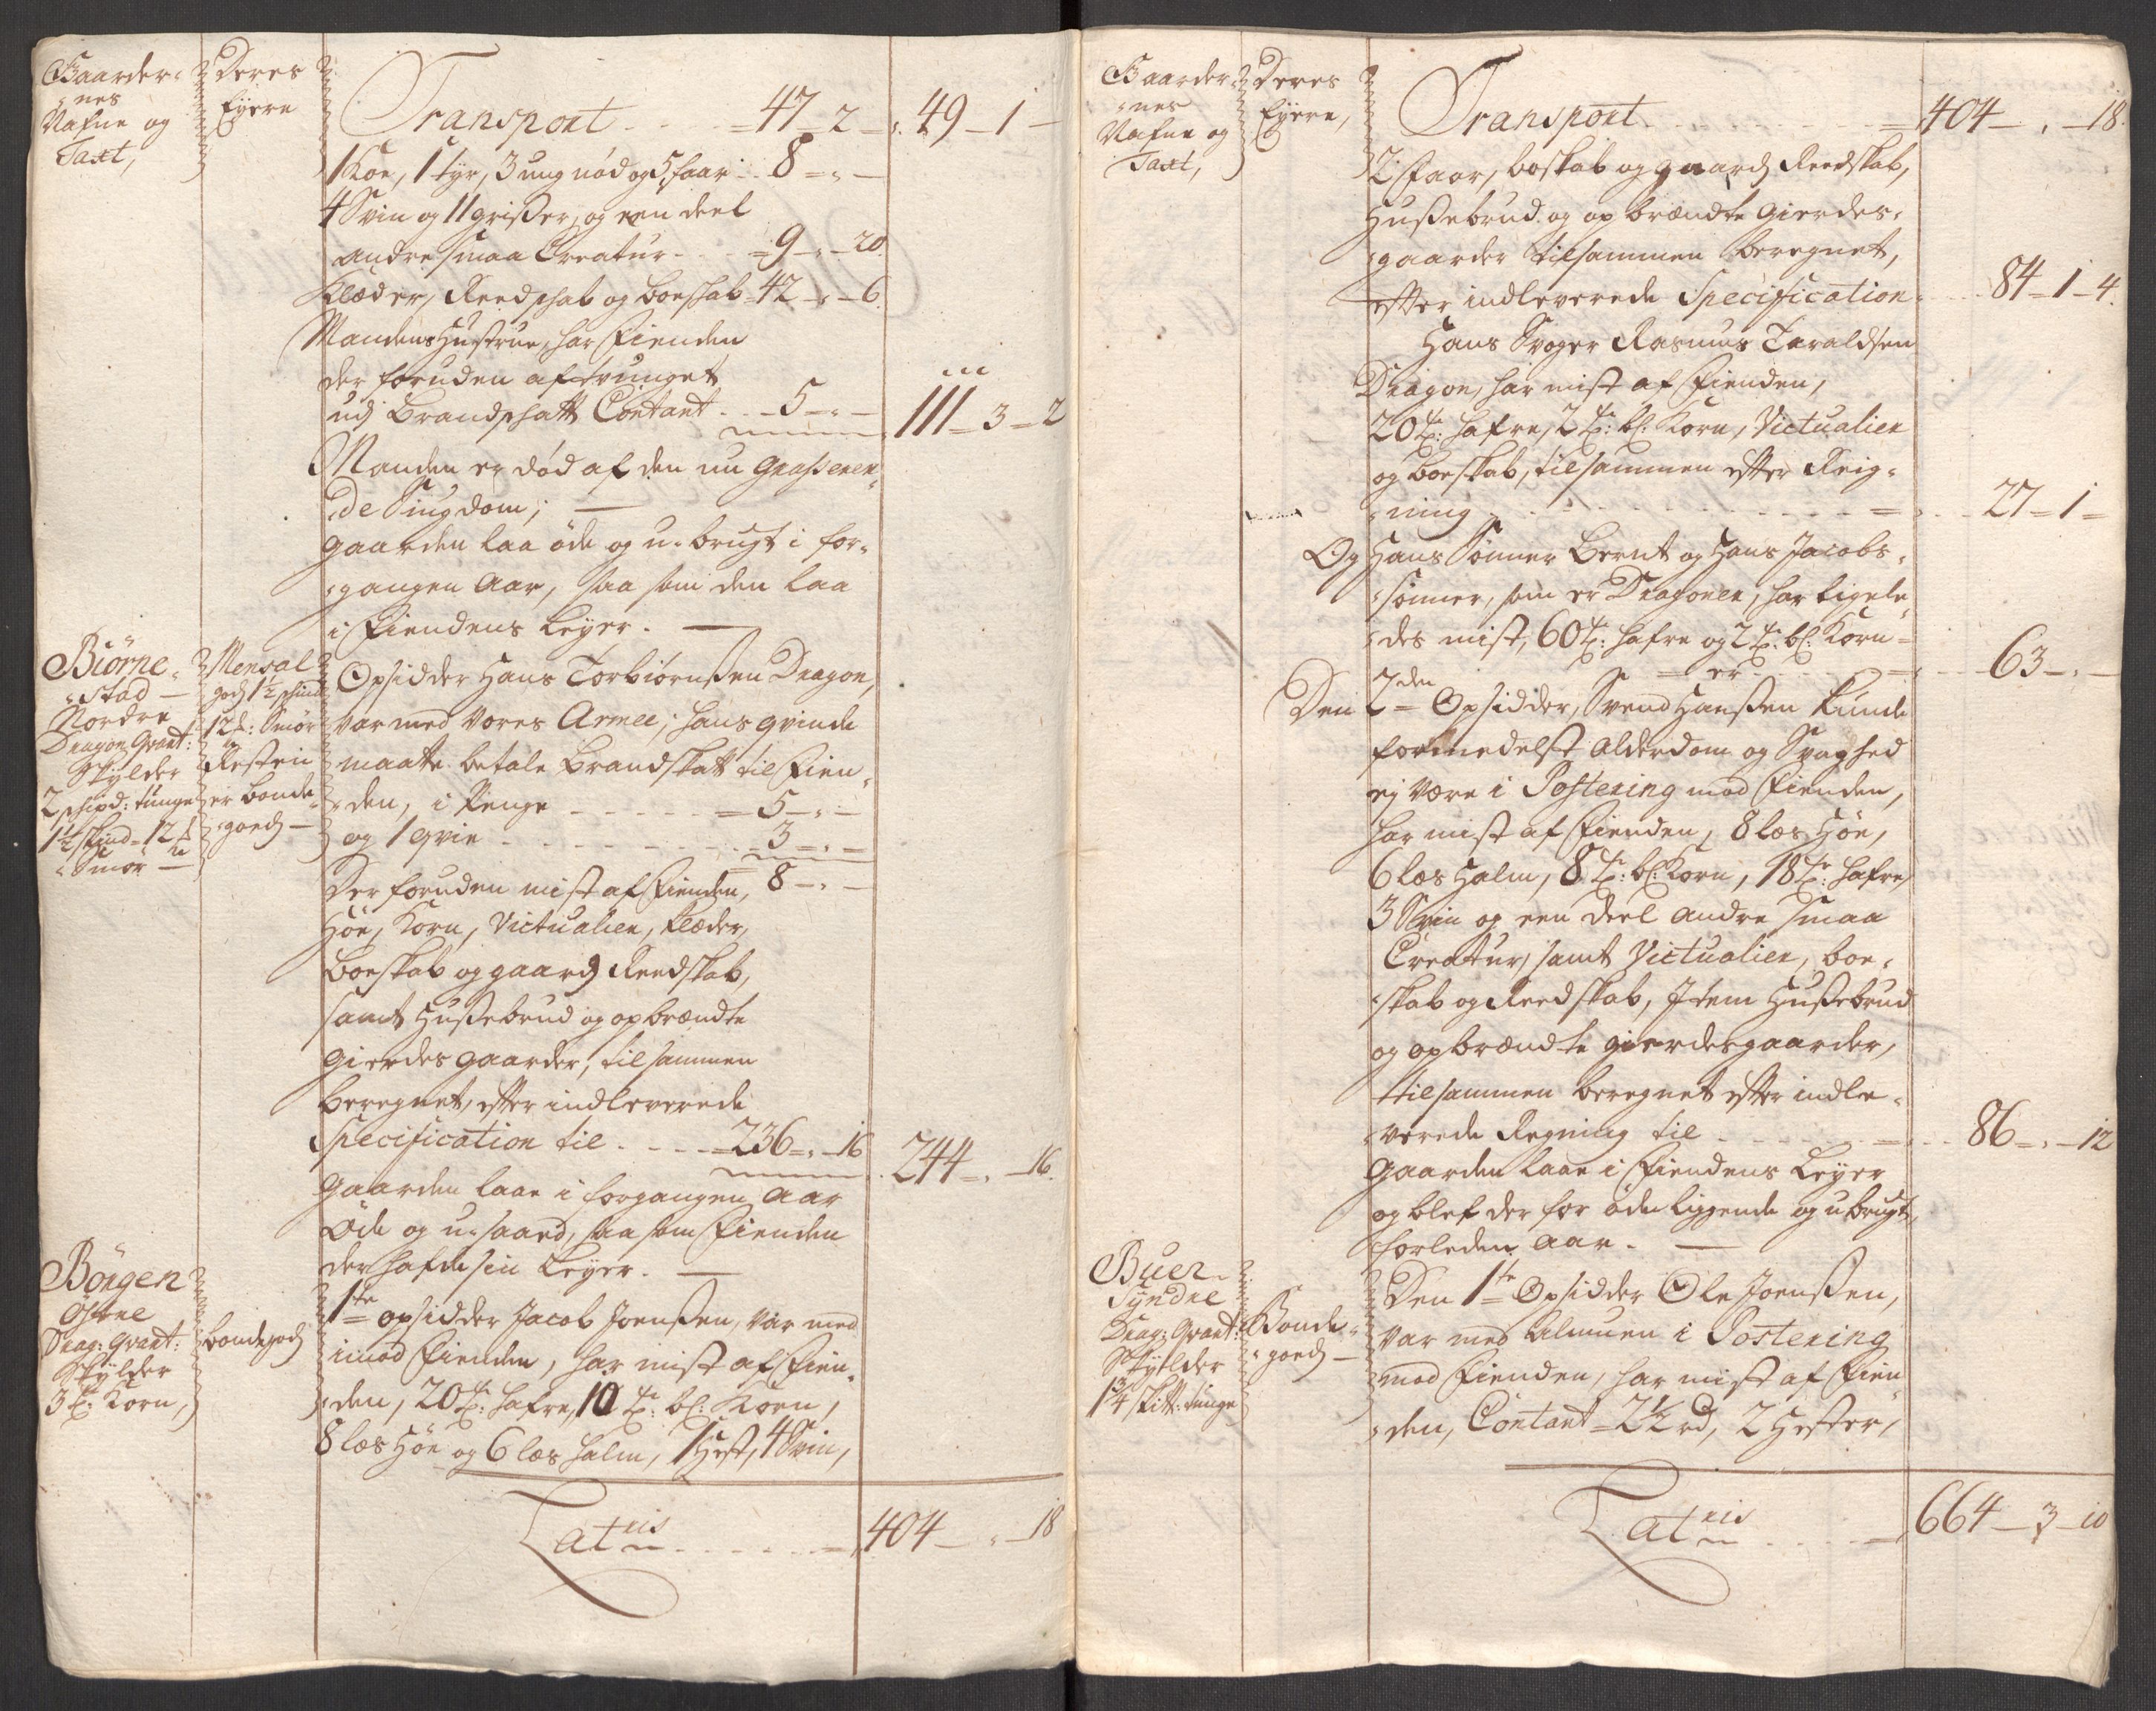 Gaarder-
nes
Nafne og
Taxt,
Deres
Eÿere
Transport - - - 47-2-" 49-1-
1 Koe, 1 tyr, 3 ung nød og 5 faar 8-"-
4 Svin og 11 grißer, og een deel
andre smaa Creatur - - 9-"-20
Klæder, Reedschab og boeschab 42-"-6
Mandens Hustrue, har Fienden
der foruden aftvunget
udj Brandschatt Contant - - 5-"- 111-3-2
Manden er død af den nu Grasseren-
de Siugdom; —
gaarden laa øde og u-brugt i for-
gangen Aar, saa som den laa
i Fiendens Leÿer. —
Biørne-
stad —
Nordre
Dragon Qvart:
Skÿlder
2 schipd: tunge
1½ skind - 12 ℔
Smør —
Mensal
godz 1½ skind
12 ℔: Smør
Resten
er bonde-
goedz —
Opsidder Hans Torbiørnßen Dragon,
var med Vores Armee, hans qvinde
maatte betale Brandskatt til Fien-
den, i Penge - - - - 5-"-
og 1 qvie - - - - - - 3-"-
Der foruden mist af Fienden, 8-"-
Høe, Korn, Victualier, klæder,
boeskab og gaardz Reedskab,
samt Hußebrud og opbrændte
gierdes gaarder, tilsammen
beregnet, efter indleverede
Specification til - - - 236-"-16 244-"-16
gaarden laae i forgangen aar
Øde og u-saaed, saa som Fienden
der hafde sin Leÿer. —
Börgen
Østre
Drag: Qvart:
Skÿlder
3 tr: Korn,
bondegodz
1te opsidder Jacob Joenßen, var med
imod Fienden, har mist af Fien-
den, 20 tr: hafre, 10 tr: bl: Korn,
8 læs Høe og 6 læs halm, 1 Hest, 4 Svin,
Lateris - - - - 404-"-18
Gaarder-
nes
Nafne og
Taxt,
Deres
Eÿere,
Transport - - - - 404-"-18
2 Faar, boskab og gaardz Reedskab,
Hußebrud og op brændte Gierdes-
gaarder tilsammen beregnet,
efter indleverede Specification - - 84-1-4
Hans Svoger Rasmus Taraldsen
Dragon, har mist af Fienden,
20 tr: hafre, 2 tr: bl: Korn, Victualier
og boeskab, tilsammen efter Reig-
ning - - - - - - 27-1-
Og Hans Sønner Bernt og Hans Jacobs-
sønner, som er Dragoner, har ligele-
des mist, 60 tr: hafre og 2 tr: bl: Korn
er - - - - 63-"-
Den 2den Opsidder, Svend Hanßen kunde
formedelst Alderdom og Svaghed
ej være i Postering mod Fienden,
har mist af Fienden, 8 læs Høe,
6 læs Halm, 8 tr: bl: Korn, 18 tr: hafre,
3 Svin og een deel andre smaa
Creatur, samt Victualier, boe-
skab og Reedskab, Item Hußebrud
og opbrændte gierdesgaarder,
tilsammen beregnet efter indle-
verede Regning til - - - 86-"-12
Gaarden laae i Fiendens Leÿer
og blef der for øde liggende og ubrugt,
forleden aar. —
Buer
Syndre
Drag: Qvart:
Skÿlder
1¾ skitt: tunge
Bonde-
goedz —
Den 1te Opsidder Ole Joenßen,
var med Almuen i Postering
mod Fienden, har mist af Fien
den, Contant - 2½ rd, 2 Hester,
Lateris - - - - 664-3-10